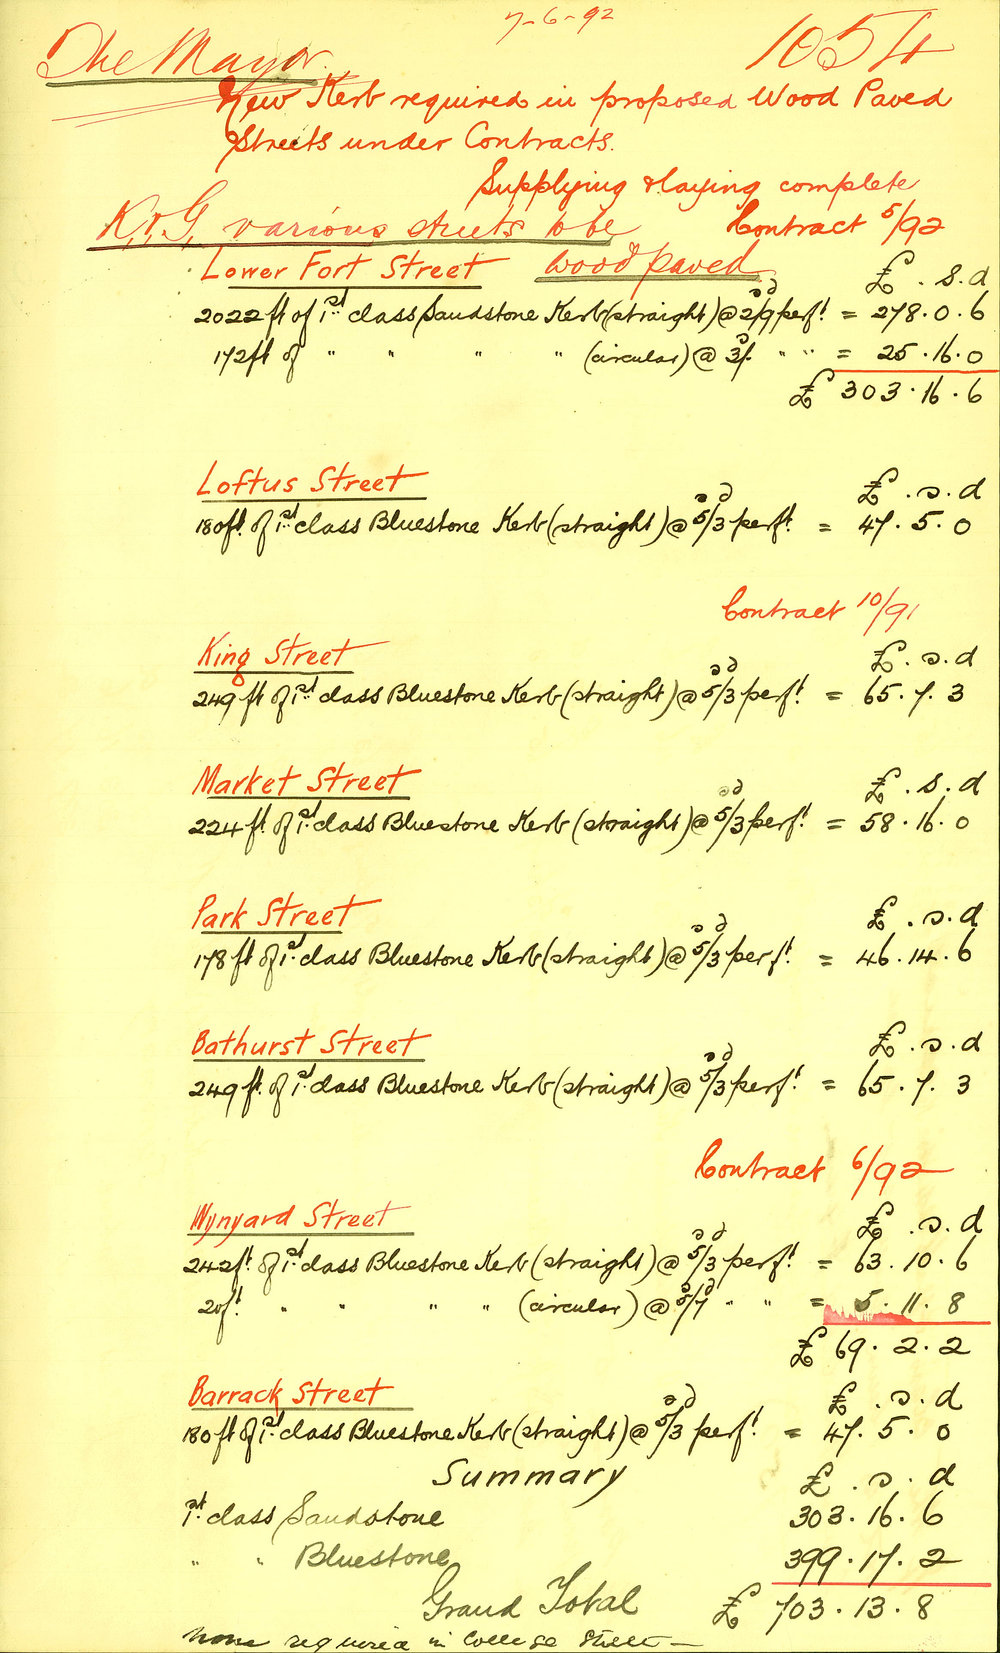 7-6-92
1054
The Mayor.
New Kerb required in proposed Wood Paved
Streets under Contracts.
Supplying & laying complete
K. & G. various streets to be
wood paved
Contract 5/92
Lower Fort Street
£ . s. d
2022 ft of 1st class Sandstone Kerb (straight) @ 2s/9d per ft = 278. 0. 6
172 ft of " " " " (circular) @ 3s/. " " = 25. 16. 0
£ 303. 16. 6
Loftus Street
£ . s. d
180 ft. of 1st class Bluestone Kerb (straight) @ 5s/3d per ft. = 47. 5. 0
Contract 10/91
King Street
£ . s. d
249 ft of 1st class Bluestone Kerb (straight) @ 5s/3d per ft = 65. 7. 3
Market Street
£ . s. d
224 ft. of 1st class Bluestone Kerb (straight) @ 5s/3d per ft. = 58. 16. 0
Park Street
£ . s. d
178 ft of 1st class Bluestone Kerb (straight) @ 5s/3d per ft. = 46. 14. 6
Bathurst Street
£ . s. d
249 ft. of 1st class Bluestone Kerb (straight) @ 5s/3d per ft. = 65. 7. 3
Contract 6/92
Wynyard Street
£ . s. d
242 ft. of 1st class Bluestone Kerb (straight) @ 5s/3d per ft. = 63. 10. 6
20 ft. " " " " (circular) @ 5s/7d " " = 5. 11. 8
£ 69. 2. 2
Barrack Street
£ . s. d
180 ft of 1st class Bluestone Kerb (straight) @ 5s/3d per ft. = 47. 5. 0
Summary
£ . s. d
1st class Sandstone 303. 16. 6
" " Bluestone 399. 17. 2
Grand Total £ 703. 13. 8
None required in College Street —